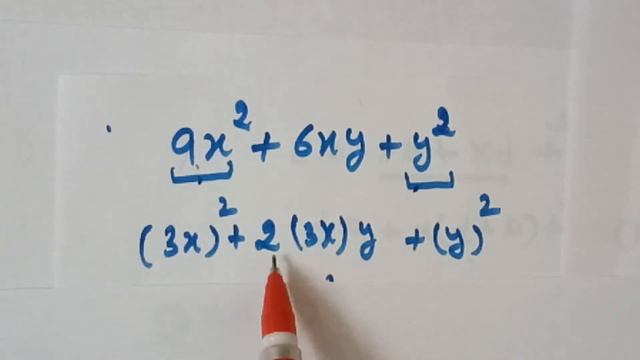 9x² + 6xy + y²
(3x)² + 2(3x)y + (y)²